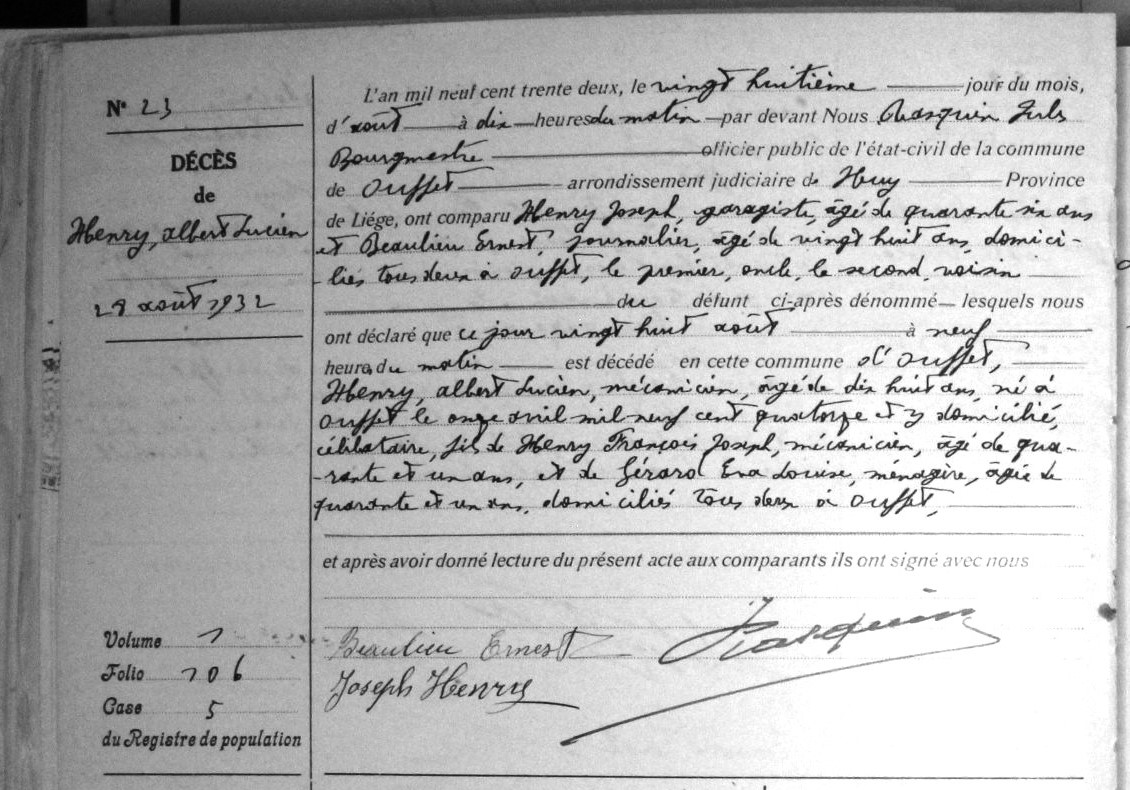 N° 23
DÉCÈS
de
Henry, albert Lucien
28 août 1932
Volume 1
Folio 106
Case 5
du Registre de population
L'an mil neuf cent trente deux, le vingt huitième jour du mois,
d'août à dix heures du matin par devant Nous Rasquin Jules
Bourgmestre officier public de l'état-civil de la commune
de Ouffet arrondissement judiciaire de Huy Province
de Liége, ont comparu Henry Joseph, garagiste, âgé de quarante six ans
et Beaulieu Ernest, journalier, âgé de vingt huit ans, domici-
liés tous deux à Ouffet, le premier, oncle, le second, voisin
du défunt ci-après dénommé lesquels nous
ont déclaré que ce jour vingt huit août à neuf
heures du matin est décédé en cette commune d'Ouffet,
Henry, albert Lucien, mécanicien, âgé de dix huit ans, né à
Ouffet le onze avril mil neuf cent quatorze et y domicilié,
célibataire, fils de Henry François Joseph, mécanicien, âgé de qua-
-rante et un ans, et de Gérard Eva Louise, ménagère, âgée de
quarante et un ans, domiciliés tous deux à Ouffet,
et après avoir donné lecture du présent acte aux comparants ils ont signé avec nous
Beaulieu Ernest
Rasquin
Joseph Henry